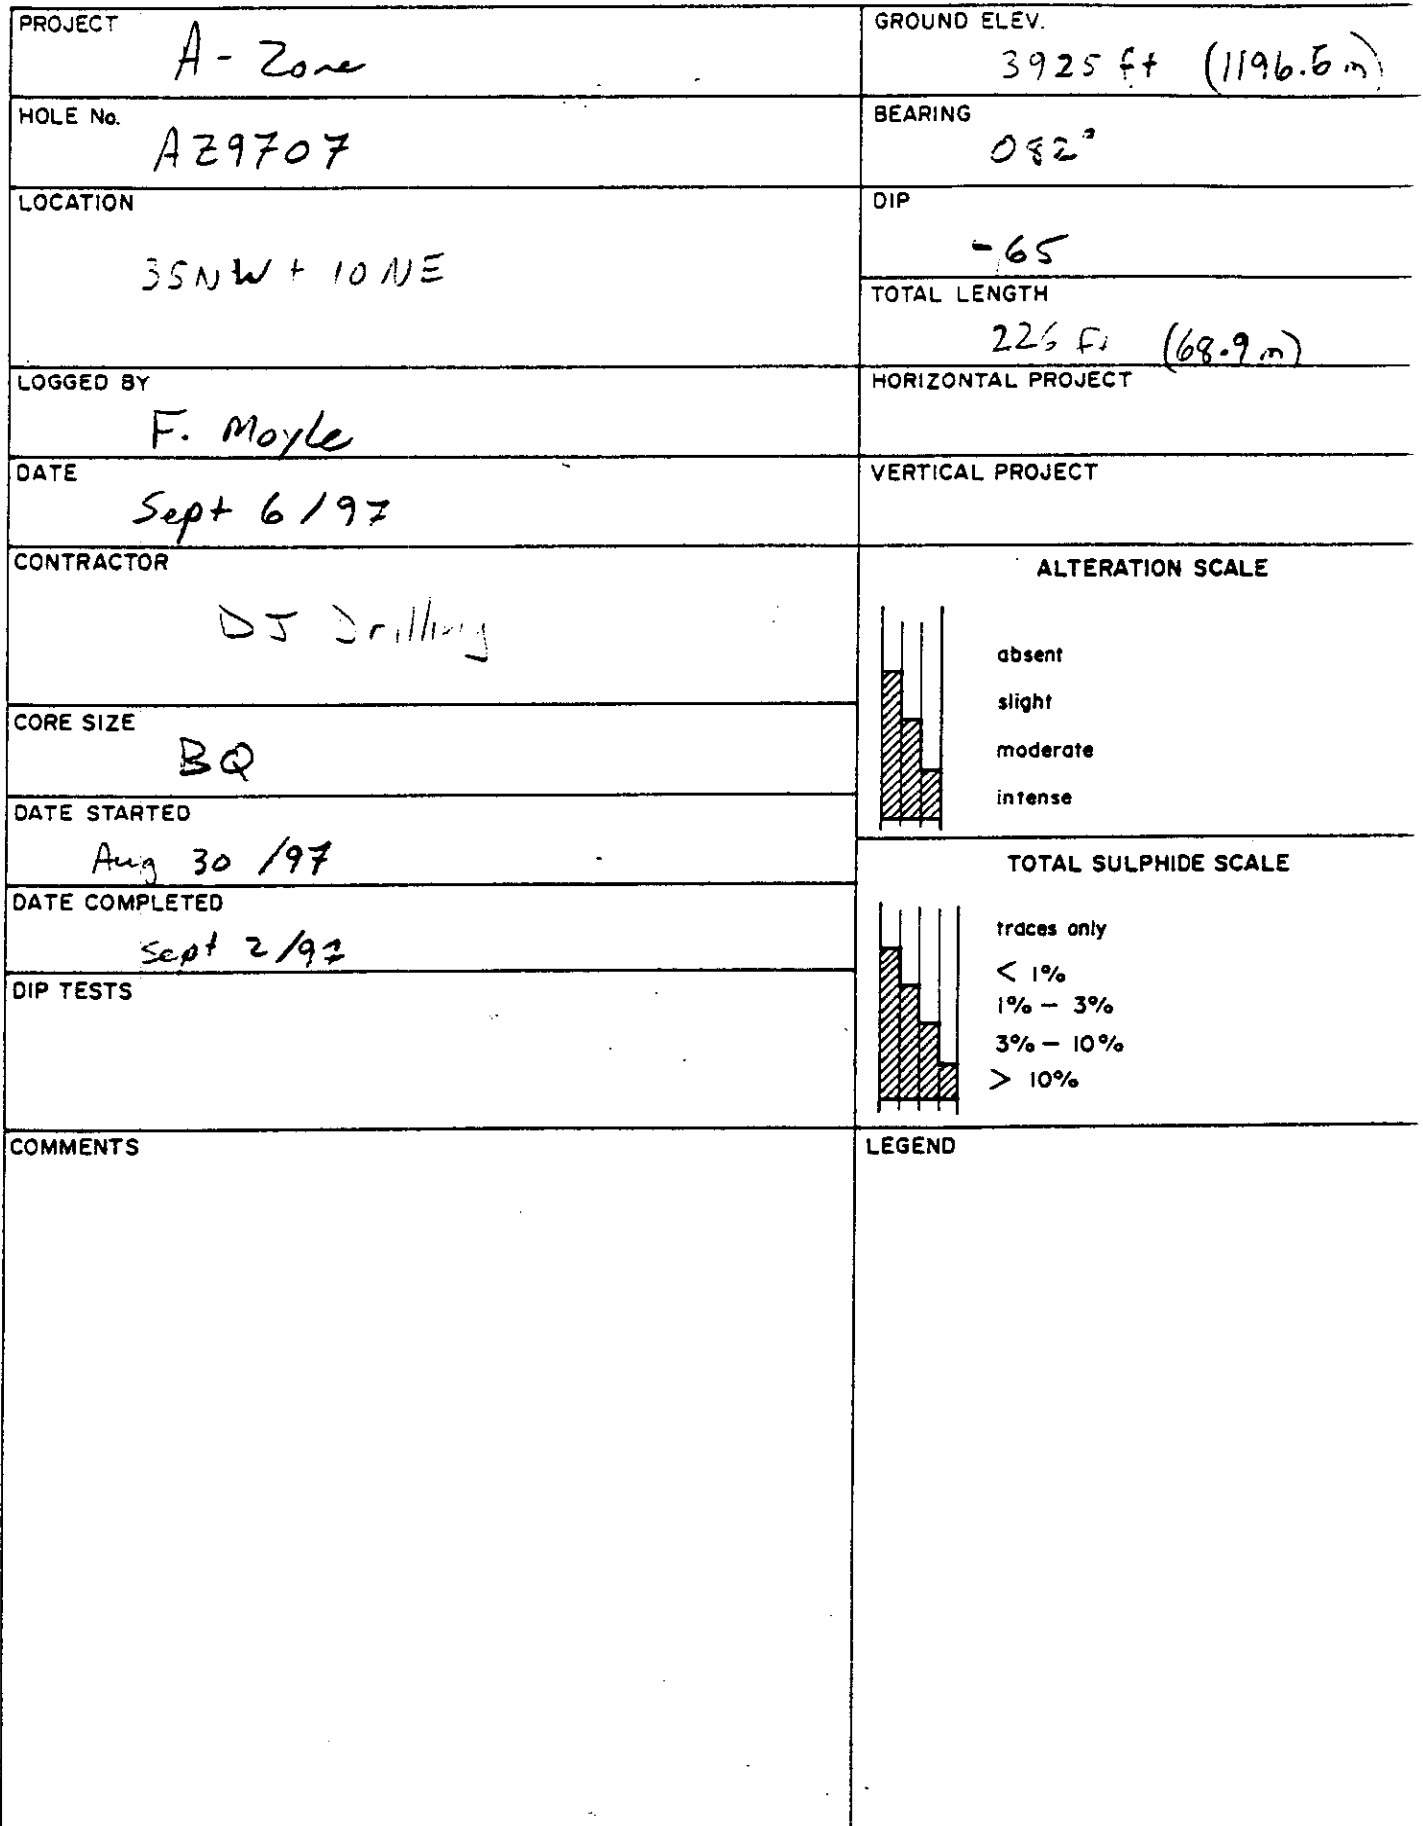 PROJECT
A - Zone
HOLE No.
AZ9707
LOCATION
35NW + 10NE
LOGGED BY
F. Moyle
DATE
Sept 6/97
CONTRACTOR
DJ Drilling
CORE SIZE
BQ
DATE STARTED
Aug 30/97
DATE COMPLETED
Sept 2/97
DIP TESTS
COMMENTS
GROUND ELEV.
3925 ft (1196.6 m)
BEARING
082°
DIP
-65
TOTAL LENGTH
226 Ft (68.9 m)
HORIZONTAL PROJECT
VERTICAL PROJECT
ALTERATION SCALE
absent
slight
moderate
intense
TOTAL SULPHIDE SCALE
traces only
< 1%
1% - 3%
3% - 10%
> 10%
LEGEND